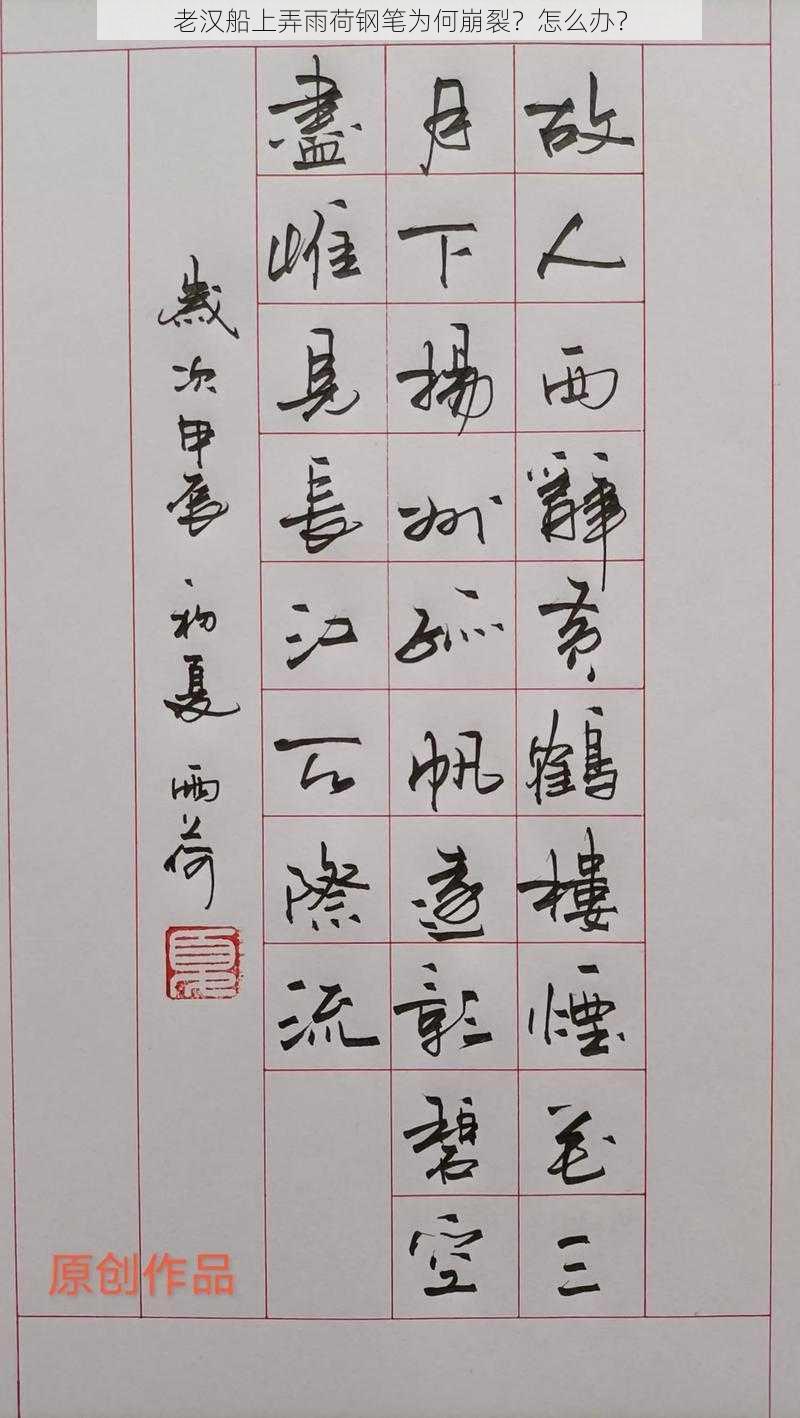 老汉船上弄雨荷钢笔为何崩裂？怎么办？
故人西辭黄鶴樓煙花三
月下揚州孤帆遠影碧空
盡唯見長江天際流
歲次甲辰 初夏 雨荷
原创作品